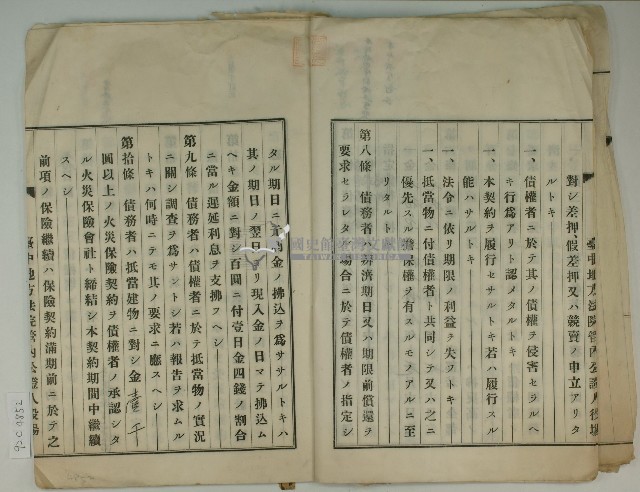 對シ差押、假差押又ハ競賣ノ申立アリタ
ルトキ
一、債權者ニ於テ其ノ債權ヲ侵害セラルヘ
キ行爲アリト認メタルトキ
一、本契約ヲ履行セサルトキ若ハ履行スル
能ハサルトキ
一、法令ニ依リ期限ノ利益ヲ失フトキ
一、抵當物ニ付債權者ト共同シテ又ハ之ニ
優先スル擔保權ヲ有スルモノアルニ至
リタルトキ
第八條 債務者ハ辨濟期日又ハ期限前償還ヲ
要求セラレタル場合ニ於テ債權者ノ指定シ
タル期日ニ元利金ノ拂込ヲ爲ササルトキハ
其ノ期日ノ翌日ヨリ現入金ノ日マテ拂込ム
ヘキ金額ニ對シ百圓ニ付壹日金四錢ノ割合
ニ當ル遲延利息ヲ支拂フヘシ
第九條 債務者ハ債權者ニ於テ抵當物ノ實況
ニ關シ調查ヲ爲サントシ若ハ報告ヲ求ムル
トキハ何時ニテモ其ノ要求ニ應スヘシ
第拾條 債務者ハ抵當建物ニ對シ金壹千
圓以上ノ火災保險契約ヲ債權者ノ承認シタ
ル火災保險會社ト締結シ本契約期間中繼續
スヘシ
前項ノ保險繼續ハ保險契約滿期前ニ於テ之
臺中地方法院管內公證人役場
90C4852